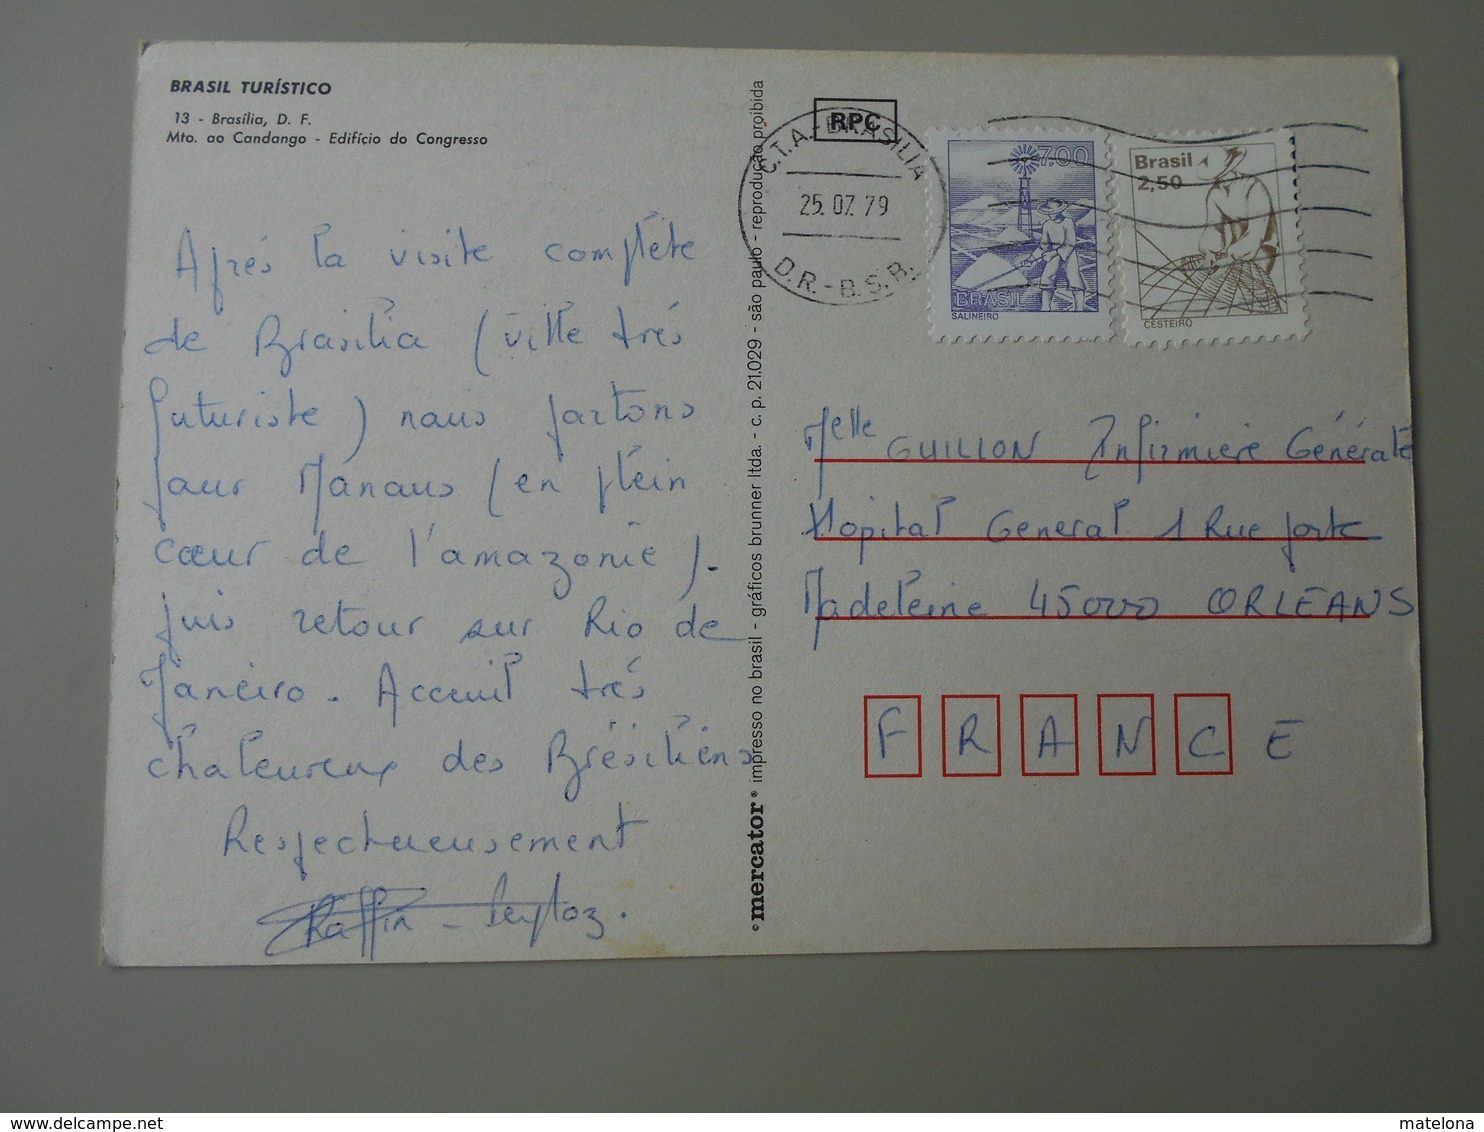 BRASIL TURÍSTICO
13 - Brasília, D. F.
Mto. ao Candango - Edifício do Congresso
Aprés la visite complète
de Brasilia (ville trés
futuriste) nous partons
pour Manaus (en plein
cœur de l'amazonie).
puis retour sur Rio de
Janeiro. Acceuil trés
chaleureux des Brésiliens
Respectueusement
Raffin - Peytoz.
mercator® impresso no brasil - gráficos brunner ltda. - c. p. 21.029 - são paulo - reprodução proibida
RPC
C.T.A. - BRASILIA
25.07.79
D.R. - B.S.B.
7.00
BRASIL
SALINEIRO
Brasil
2,50
CESTEIRO
Melle GUILLON Infirmiere Générale
Hopital General 1 Rue porte
Madeleine 45000 ORLEANS
F R A N C E
delcampe.net
matelona